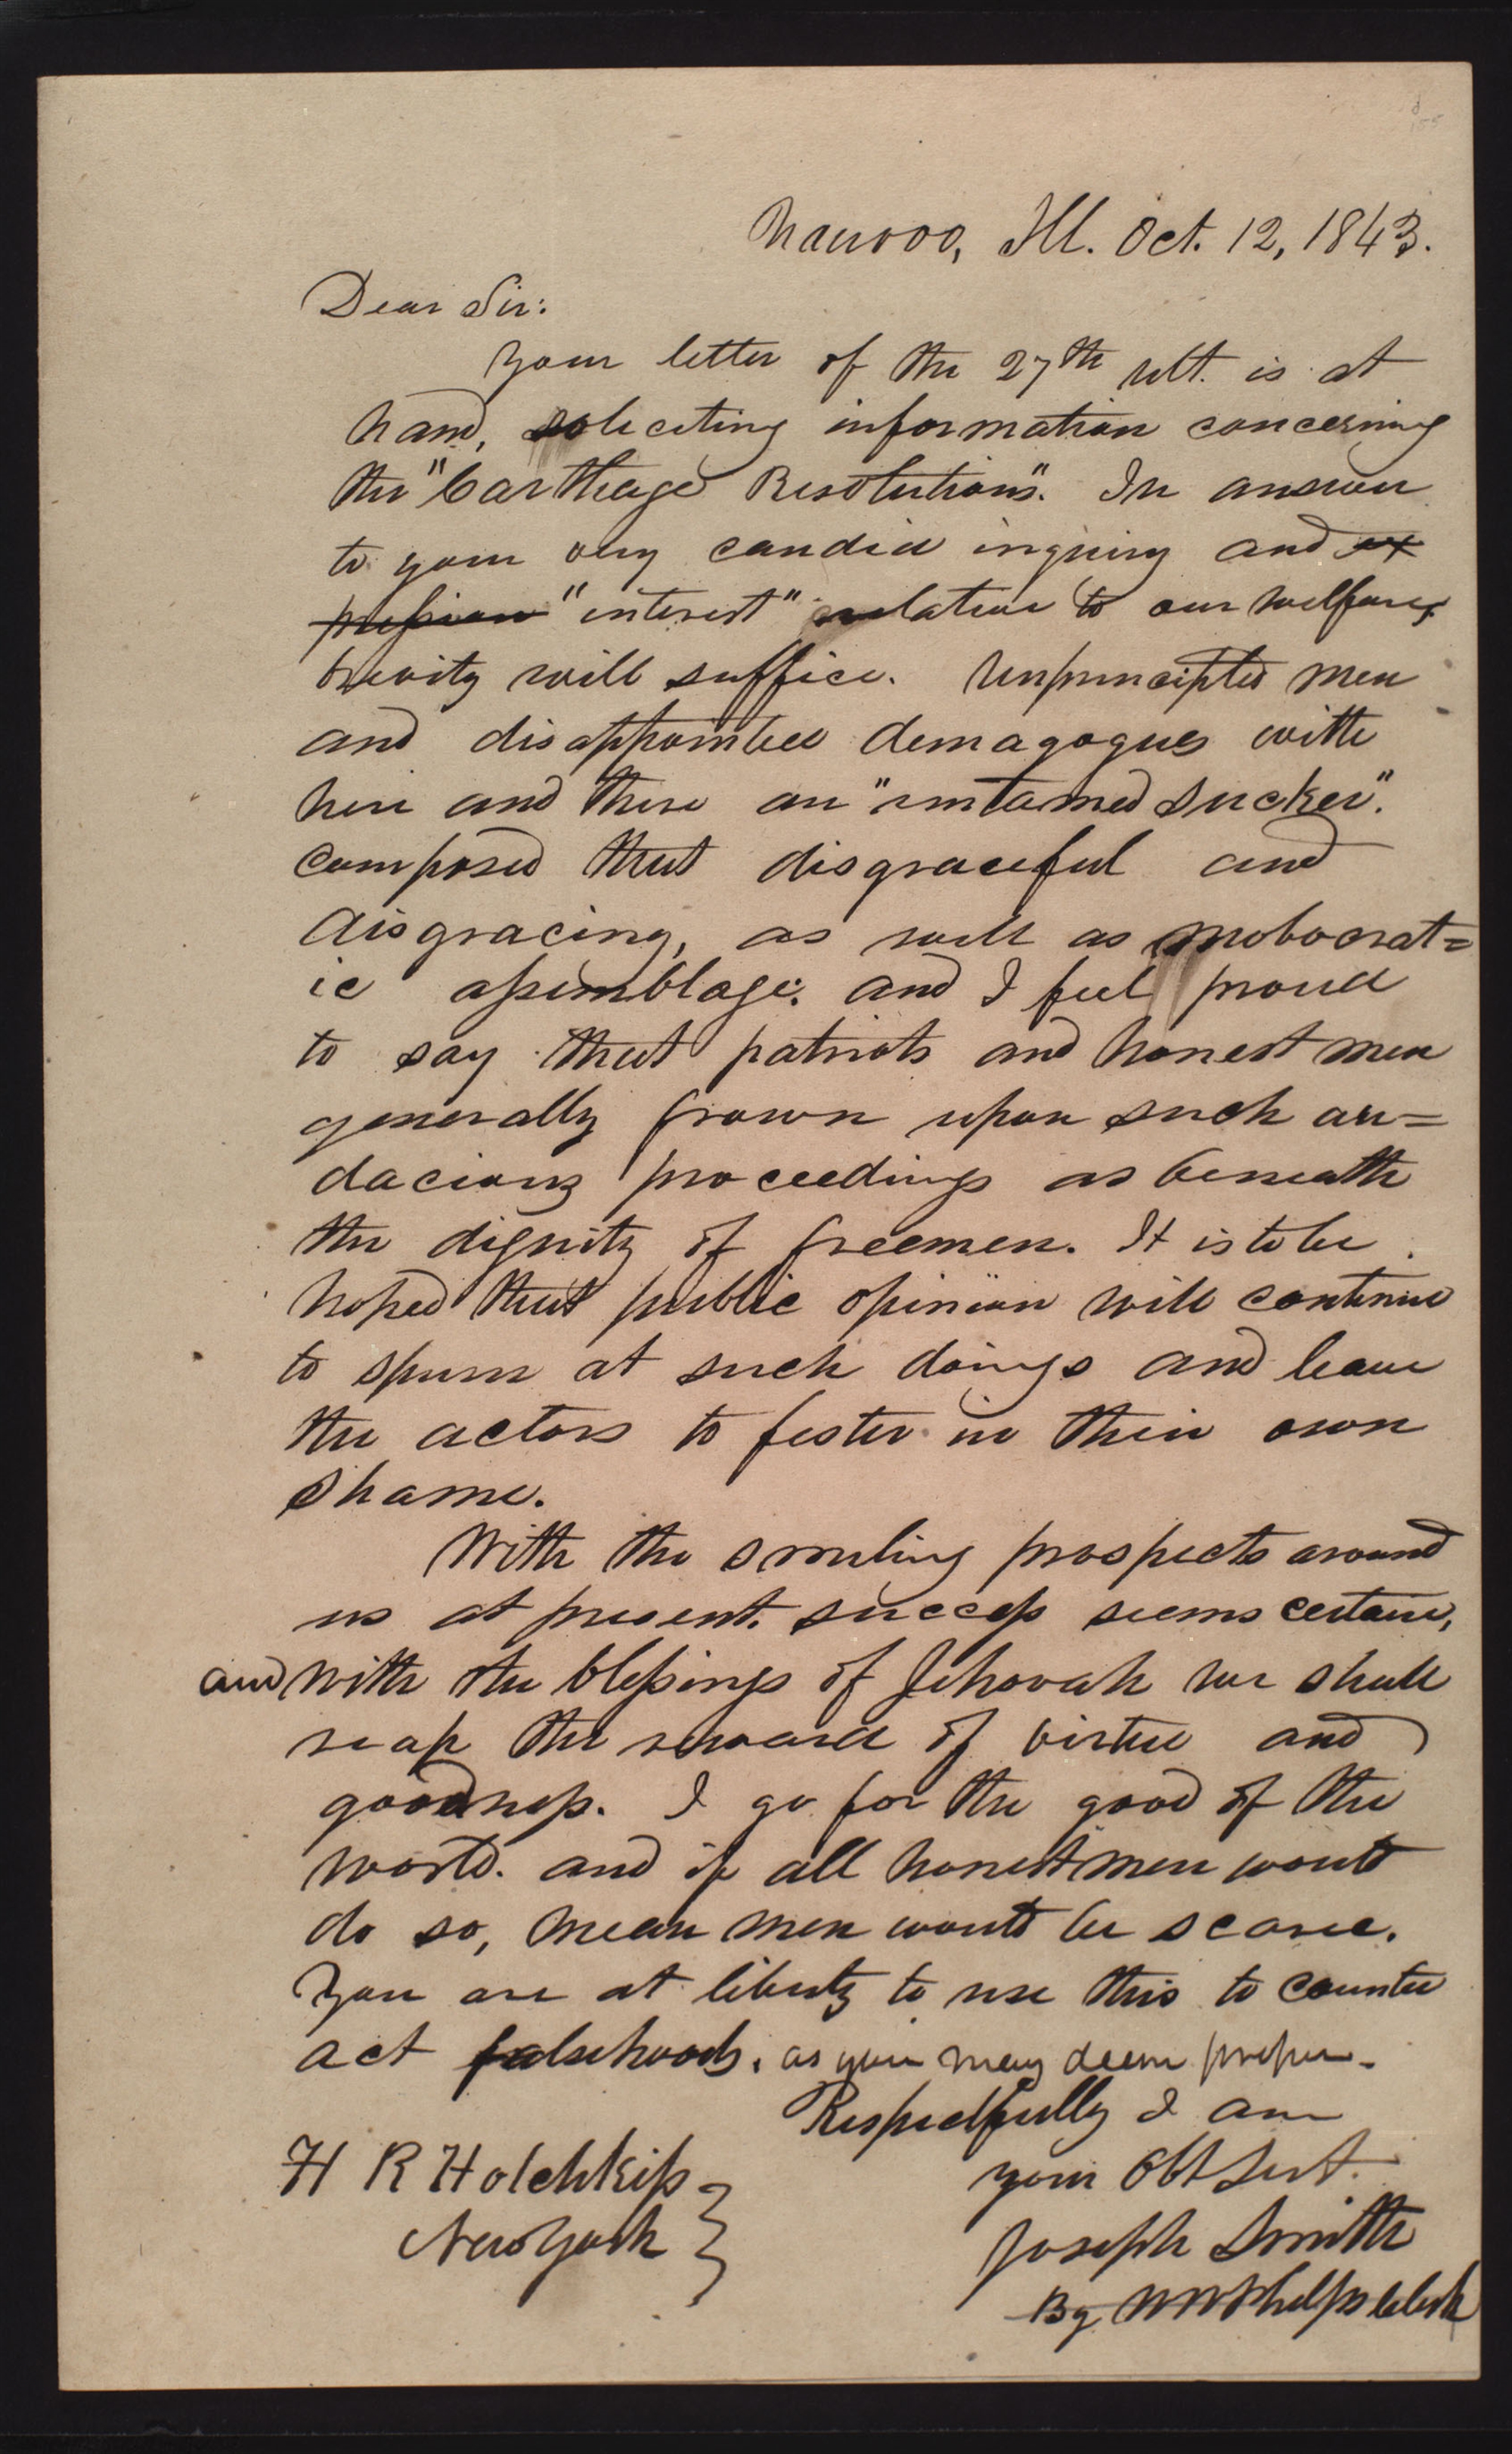 Nauvoo, Ill. Oct. 12, 1843.
Dear Sir:
Your letter of the 27th ult. is at
hand, soliciting information concerning
the "Carthage Resolutions". In answer
to your very candid inquiry and ex
pression "interest" relative to our welfare,
brevity will suffice. Unprincipled men
and disappointed demagogues with
here and there an "untamed sucker".
composed that disgraceful and
disgracing, as well as mobocrat=
ic assemblage; and I feel proud
to say that patriots and honest men
generally frown upon such au=
dacious proceedings as beneath
the dignity of freemen. It is to be
hoped that public opinion will continue
to spurn at such doings and leave
the actors to fester in their own
shame.
With the smiling prospects around
us at present. success seems certain,
and with the blessings of Jehovah we shall
reap the reward of virtue and
goodness. I go for the good of the
world. and if all honest men would
do so, mean men would be scarce.
You are at liberty to use this to counter
act falsehoods, as you may deem proper.
Respectfully I am
your Obt Servt.
H R Hotchkiss
New York
Joseph Smith
By W W Phelps Clerk